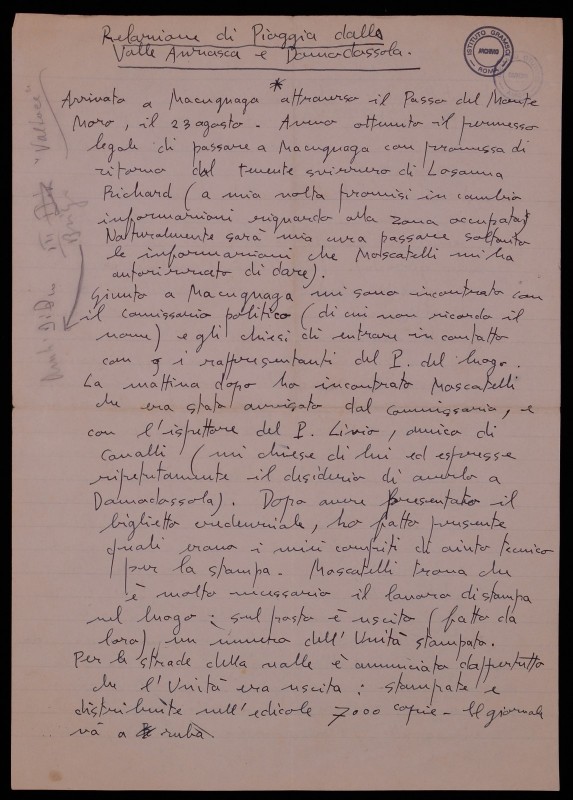 Relazione di Piaggia dalla
Valle Anzasca e Domodossola.
ISTITUTO GRAMSCI
ROMA
*
Arrivato a Macugnaga attraverso il Passo del Monte
Moro, il 23 agosto. Avevo ottenuto il permesso
legale di passare a Macugnaga con promessa di
ritorno dal tenente svizzero di Losanna
Richard (a mia volta promisi in cambio
informazioni riguardo alla zona occupata)
Naturalmente sarà mia cura passare soltanto
le informazioni che Moscatelli mi ha
autorizzato di dare).
Giunto a Macugnaga mi sono incontrato con
il comissario politico (di cui non ricordo il
nome) e gli chiesi di entrare in contatto
con i rappresentanti del P. del luogo.
La mattina dopo ho incontrato Moscatelli
che era stato avvisato dal commissario, e
con l'ispettore del P. Livio, amico di
Cavalli (mi chiese di lui ed espresse
ripetutamente il desiderio di averlo a
Domodossola). Dopo avere presentato il
biglietto credenziale, ho fatto presente
quali erano i miei compiti di aiuto tecnico
per la stampa. Moscatelli trova che
è molto necessario il lavoro di stampa
nel luogo: sul posto è uscito (fatto da
loro) un numero dell'Unità stampato.
Per le strade della valle è annunciato dappertutto
che l'Unità era uscita: stampate e
distribuite nell'edicole 7000 copie - Il giornale
và a ruba
"Vallace"